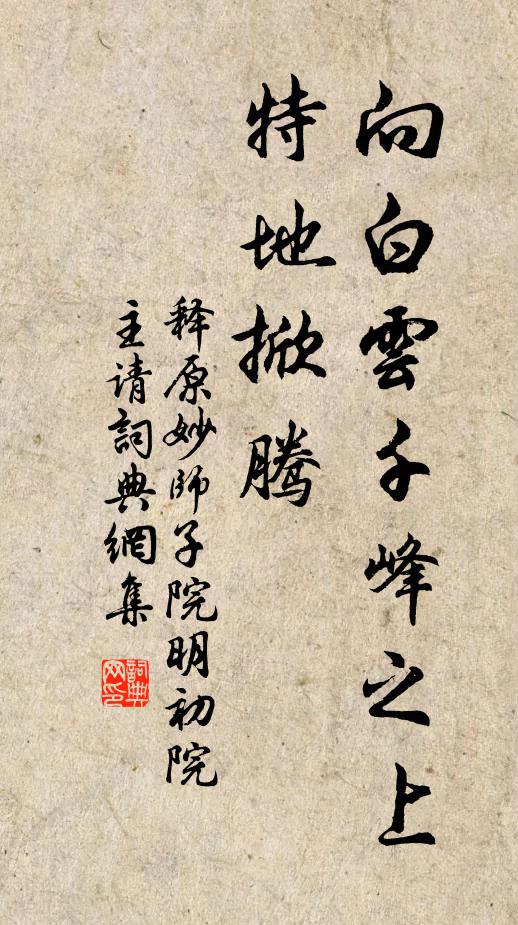 向白雲千峰之上
特地掀腾
释原妙師子院明初院
主请詞典網集
詞典
网印